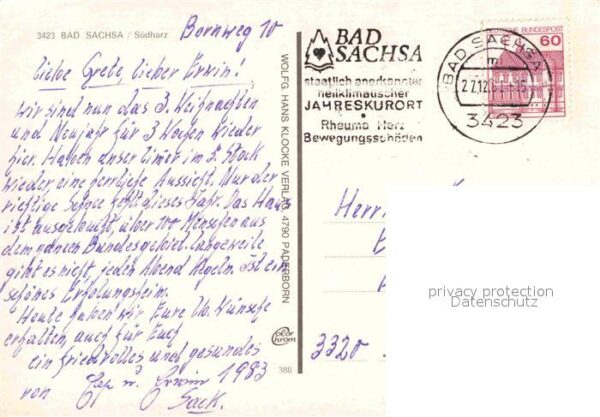 3423 BAD SACHSA / Südharz
Bornweg 10
Liebe Grete, lieber Erwin!
wir sind nun das 3. Weihnachten
und Neujahr für 3 Wochen wieder
hier. Haben unser Zimmer im 5. Stock
wieder eine herrliche Aussicht. Nur der
richtige Schnee fehlt dieses Jahr. Das Haus
ist ausgebucht, über 100 Menschen aus
dem ganzen Bundesgebiet. Langeweile
gibt es nicht, jeden Abend Kegeln. Ist ein
schönes Erholungsheim.
Heute haben wir Eure lb. Wünsche
erhalten, auch für Euch
ein friedvolles und gesundes
1983
von u. Erwin
Sack.
WOLFG. HANS KLOCKE VERLAG, 4790 PADERBORN
color
chrom
388
BAD
SACHSA
staatlich anerkannter
heilklimatischer
JAHRESKURORT
Rheuma Herz
Bewegungsschäden
BAD SACHSA
m
27.12
3423
DEUTSCHE BUNDESPOST
60
Herrn
3320
privacy protection
Datenschutz